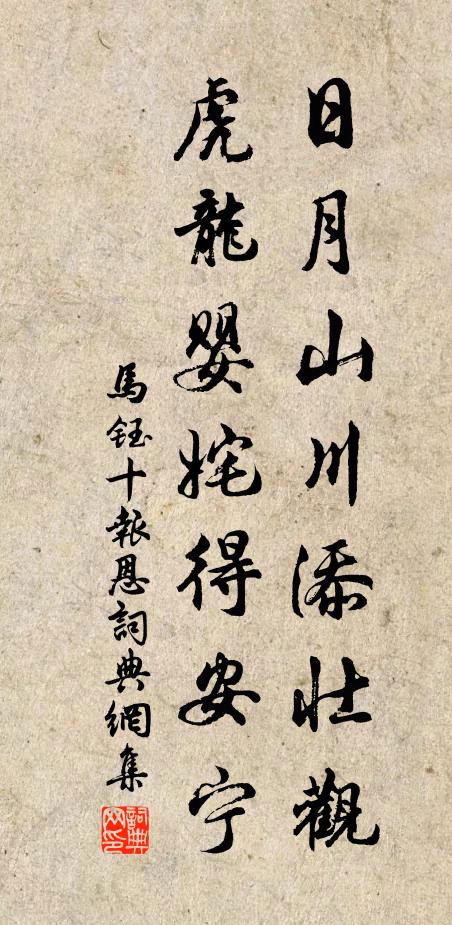 日月山川添壮觀
虎龍嬰姹得安宁
馬鈺十報恩詞典網集
詞典網印